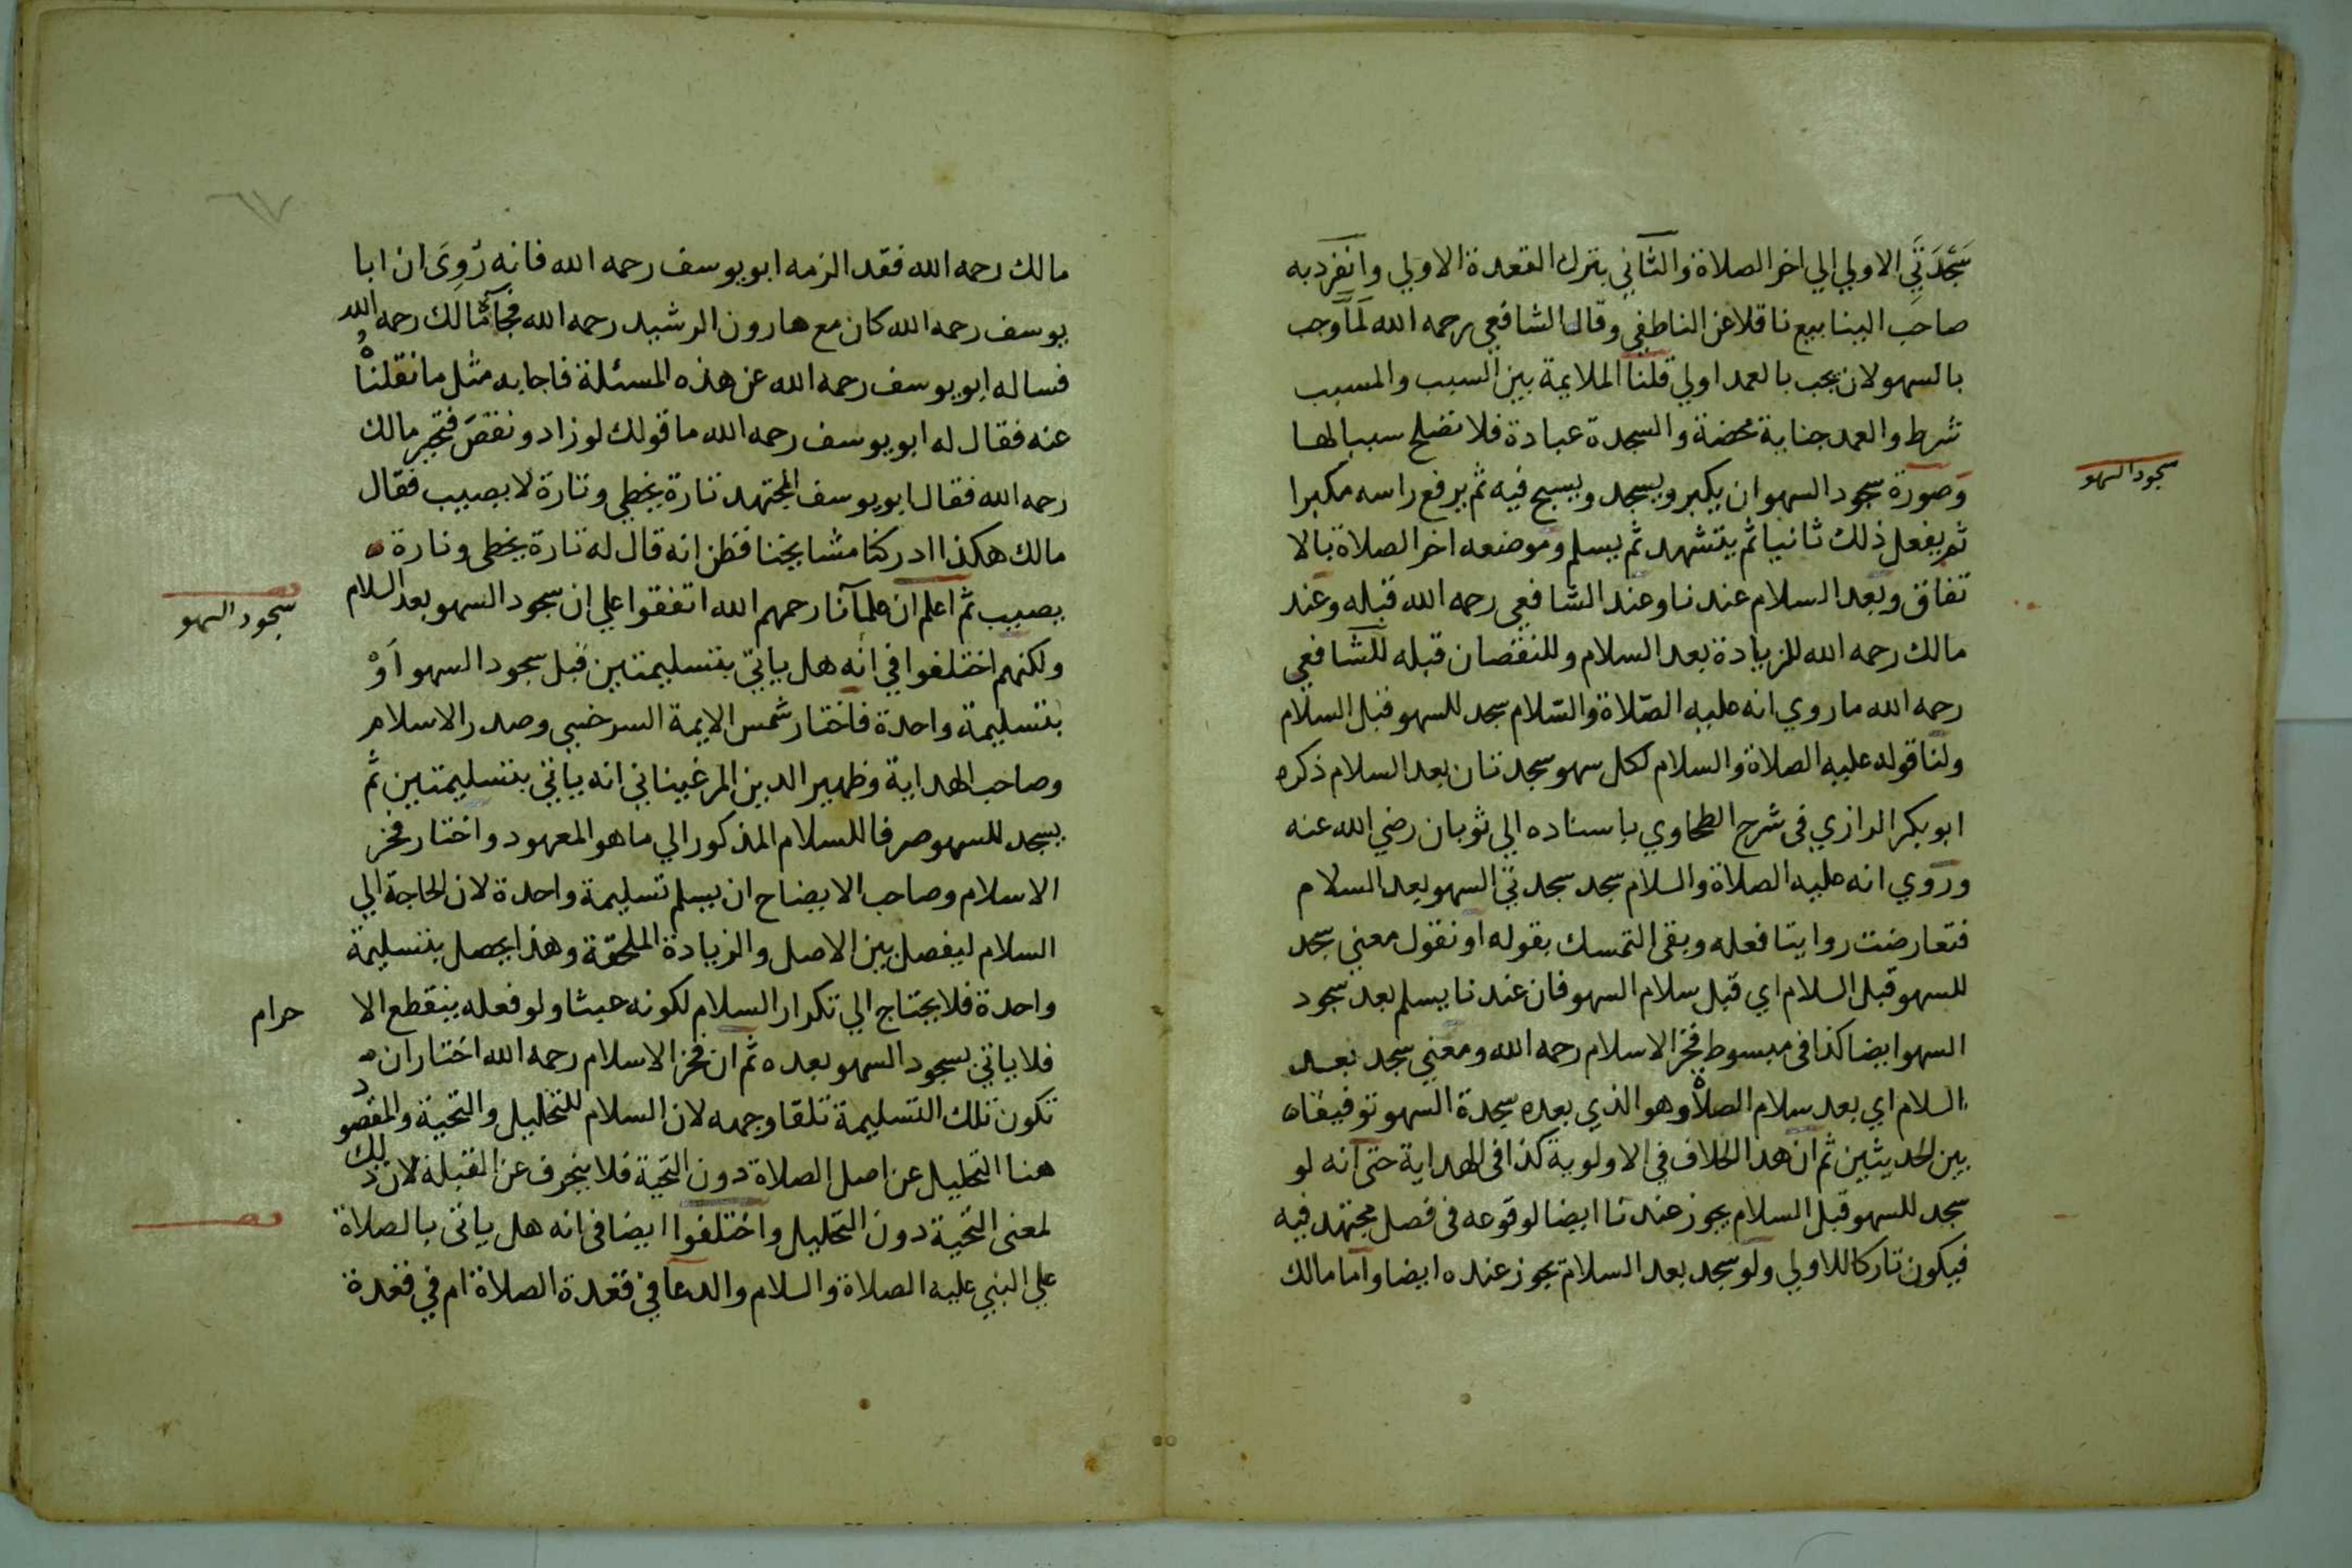 سَجْدَتَي الاولي الي اخر الصلاة والثاني بترك القعدة الاولي وانفرد به
صاحب الينابيع ناقلا عن الناطفي وقال الشافعي رحمه الله لما وجب
بالسهو لان يجب بالعمد اولي قلنا الملايمة بين السبب والمسبب
شرط والعمد جناية محضة والسجدة عبادة فلا تصلح سببا لها
وصورة سجود السهو ان يكبر ويسجد ويسبح فيه ثم يرفع راسه مكبرا
سجود السهو
ثم يفعل ذلك ثانيا ثم يتشهد ثم يسلم وموضعه اخر الصلاة بالا
تفاق وبعد السلام عندنا وعند الشافعي رحمه الله قبله وعند
مالك رحمه الله للزيادة بعد السلام وللنقصان قبله للشافعي
رحمه الله ما روي انه عليه الصلاة والسلام سجد للسهو قبل السلام
ولنا قوله عليه الصلاة والسلام لكل سهو سجدتان بعد السلام ذكره
ابو بكر الرازي في شرح الطحاوي باسناده الي ثوبان رضي الله عنه
وروي انه عليه الصلاة والسلام سجد سجدتي السهو بعد السلام
فتعارضت روايتا فعله وبقى التمسك بقوله او نقول معني سجد
للسهو قبل السلام اي قبل سلام السهو فان عندنا يسلم بعد سجود
السهو ايضا كذا في مبسوط فخر الاسلام رحمه الله ومعني سجد بعد
السلام اي بعد سلام الصلاة وهو الذي بعده سجدة السهو توفيقا
بين الحديثين ثم ان هذا الخلاف في الاولوية كذا في الهداية حتى انه لو
سجد للسهو قبل السلام يجوز عندنا ايضا لوقوعه في فصل مجتهد فيه
فيكون تاركا للاولي ولو سجد بعد السلام يجوز عنده ايضا واما مالك
٦٧
مالك رحمه الله فقد الزمه ابو يوسف رحمه الله فانه رُوِىَ ان ابا
يوسف رحمه الله كان مع هارون الرشيد رحمه الله فجآء مالك رحمه الله
فساله ابو يوسف رحمه الله عن هذه المسئلة فاجابه مثل ما نقلناه
عنه فقال له ابو يوسف رحمه الله ما قولك لو زاد ونقص فتحير مالك
رحمه الله فقال ابو يوسف المجتهد تارة يخطي وتارة لا يصيب فقال
مالك هكذا ادركنا مشايخنا فظن انه قال له تارة يخطي وتارة
يصيب ثم اعلم ان علمآنا رحمهم الله اتفقوا علي ان سجود السهو بعد السلام
سجود السهو
ولكنهم اختلفوا في انه هل ياتي بتسليمتين قبل سجود السهو اَوْ
بتسليمة واحدة فاختار شمس الايمة السرخسي وصدر الاسلام
وصاحب الهداية وظهير الدين المرغيناني انه ياتي بتسليمتين ثم
يسجد للسهو صرفا للسلام المذكور الي ما هو المعهود واختار فخر
الاسلام وصاحب الايضاح ان يسلم تسليمة واحدة لان الحاجة الي
السلام ليفصل بين الاصل والزيادة الملحقة وهذا يحصل بتسليمة
واحدة فلا يحتاج الي تكرار السلام لكونه عبثا ولو فعله ينقطع الا
حرام
فلا ياتي بسجود السهو بعده ثم ان فخر الاسلام رحمه الله اختار ان
تكون تلك التسليمة تلقا وجهه لان السلام للتحليل والتحية والمقصود
هنا التحليل عن اصل الصلاة دون التحية فلا ينحرف عن القبلة لان ذلك
لمعنى التحية دون التحليل واختلفوا ايضا في انه هل ياتى بالصلاة
علي النبي عليه الصلاة والسلام والدعا في قعدة الصلاة ام في قعدة